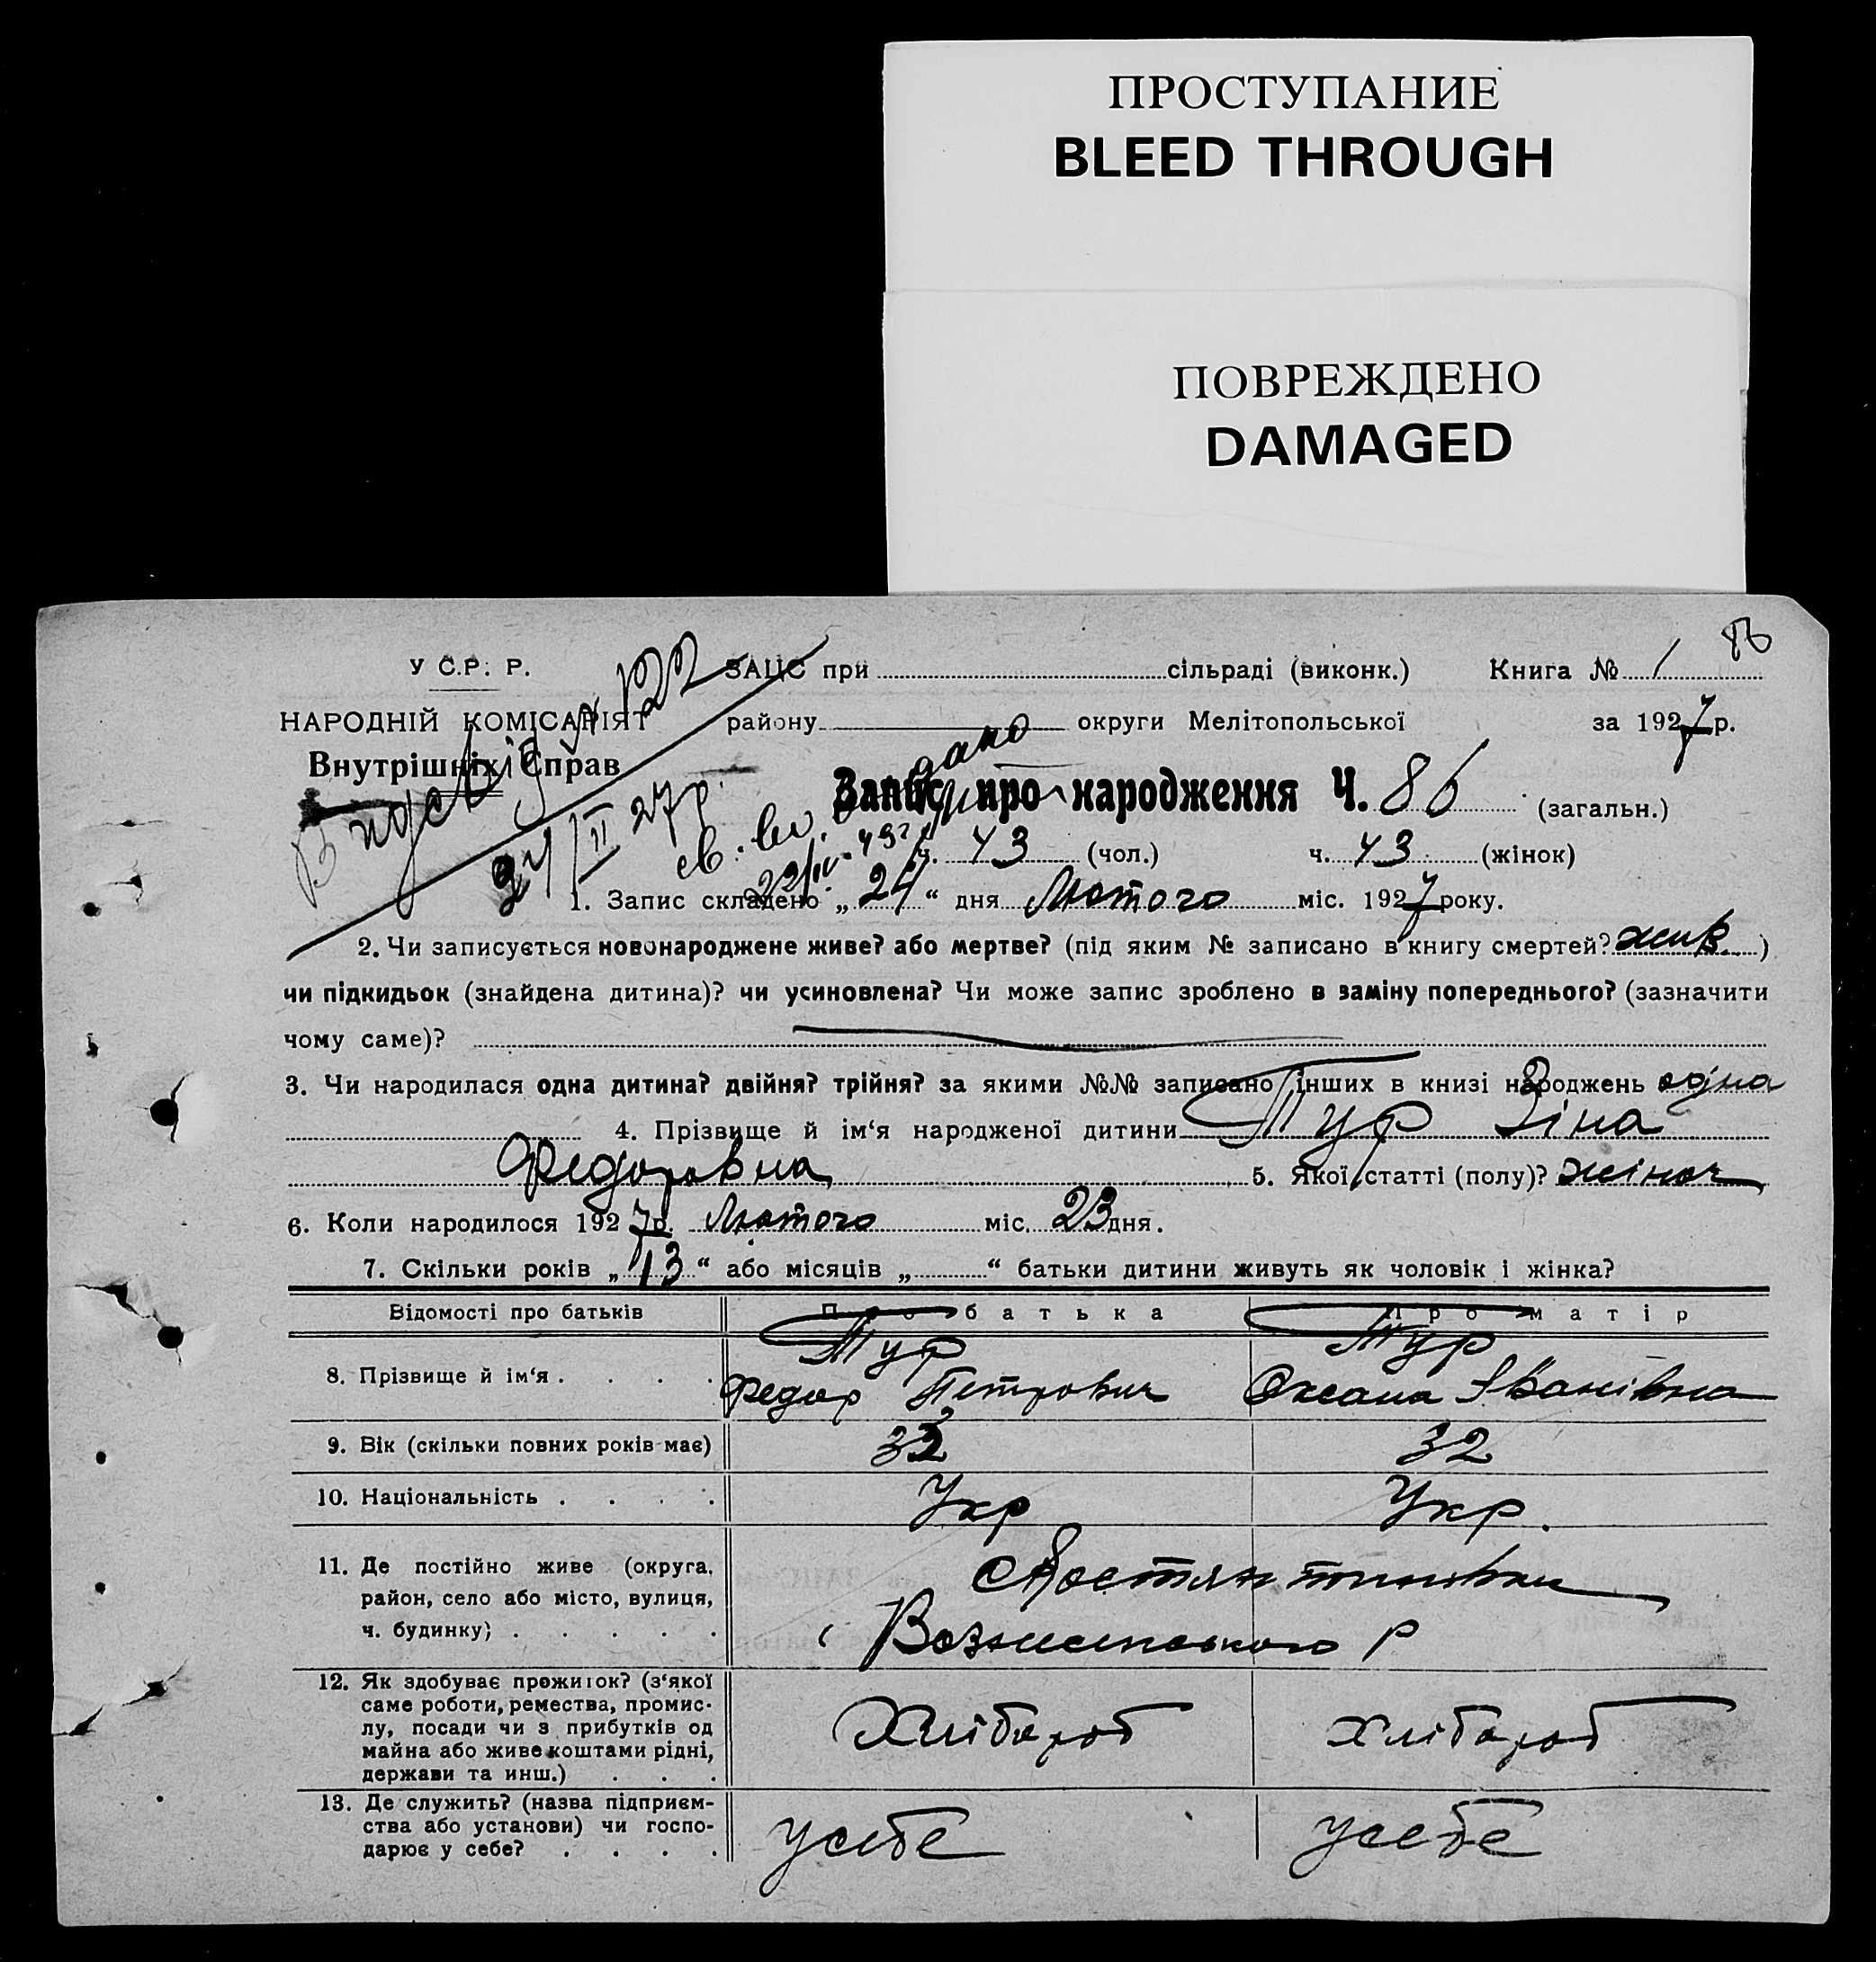 ПРОСТУПАНИЕ
BLEED THROUGH
ПОВРЕЖДЕНО
DAMAGED
86
У С.Р. Р.
ЗАЦС при сільраді (виконк.) Книга № 1
НАРОДНІЙ КОМІСАРІЯТ
району округи Мелітопольської за 1927 р.
Внутрішніх Справ
24/II 27 р.
Запис про народження Ч. 86 (загальн.)
ч. 43 (чол.) ч. 43 (жінок)
1. Запис складено „ 24 “ дня Лютого міс. 1927 року.
2. Чи записується новонароджене живе? або мертве? (під яким № записано в книгу смертей? жив )
чи підкидьок (знайдена дитина)? чи усиновлена? Чи може запис зроблено в заміну попереднього? (зазначити
чому саме)?
3. Чи народилася одна дитина? двійня? трійня? за якими №№ записано інших в книзі народжень одна
4. Прізвище й ім‘я народженої дитини Тур Зіна
Федоровна 5. Якої статті (полу)? жіноч
6. Коли народилося 1927 р. Лютого міс. 23 дня.
7. Скільки років „ 13 “ або місяців „ “ батьки дитини живуть як чоловік і жінка?
Відомості про батьків Про батька Про матір
8. Прізвище й ім‘я . . . . Тур Федор Петрович Тур Оксана Іванівна
9. Вік (скільки повних років має) 32 32
10. Національність . . . . Укр Укр.
11. Де постійно живе (округа,
район, село або місто, вулиця,
ч. будинку) . . . . .
Р
12. Як здобуває прожиток? (з‘якої
саме роботи, ремества, промис-
лу, посади чи з прибутків од
майна або живе коштами рідні,
держави та инш.) . . .
Хлібороб Хлібороб
13. Де служить? (назва підприєм-
ства або установи) чи госпо-
дарює у себе? . . . .
у себе у себе